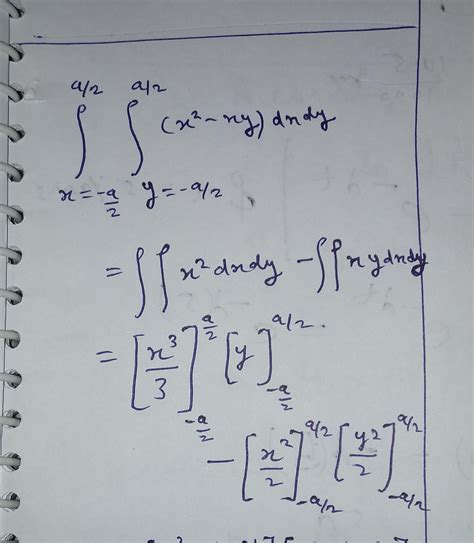 ∫_{x=-a/2}^{a/2} ∫_{y=-a/2}^{a/2} (x² - xy) dx dy
= ∫∫ x² dx dy - ∫∫ xy dx dy
= [x³/3]_{-a/2}^{a/2} [y]_{-a/2}^{a/2}.
- [x²/2]_{-a/2}^{a/2} [y²/2]_{-a/2}^{a/2}